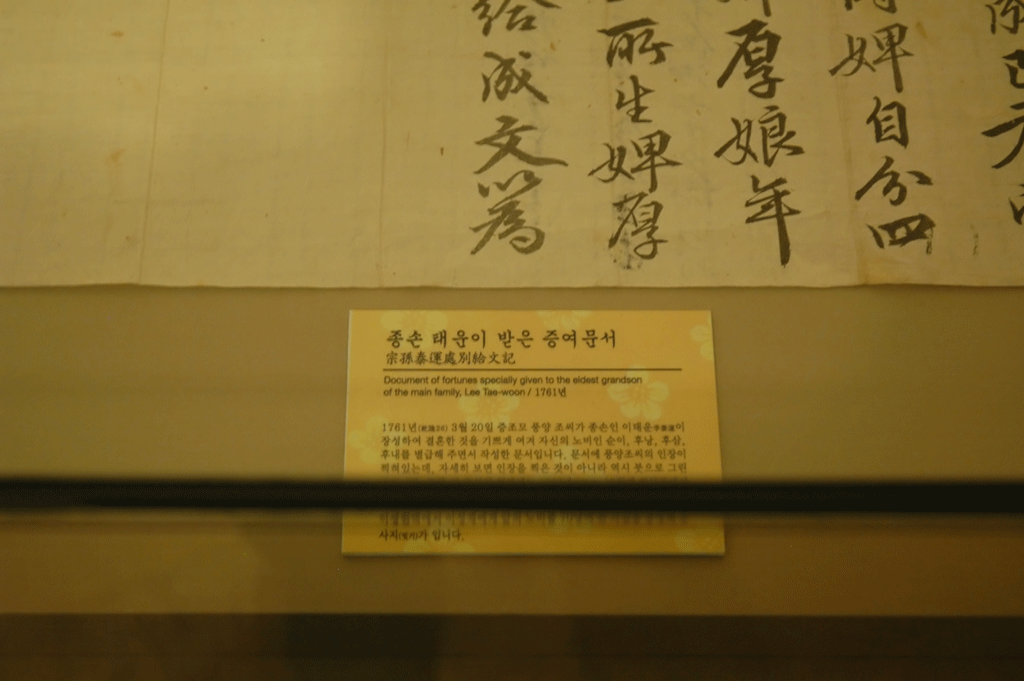 阝已元
婢自分四
厚娘年
所生婢厚
給成文以爲
종손 태운이 받은 증여문서
宗孫泰運處別給文記
Document of fortunes specially given to the eldest grandson
of the main family, Lee Tae-woon / 1761년
1761년(乾隆26) 3월 20일 증조모 풍양 조씨가 종손인 이태운李泰運이
장성하여 결혼한 것을 기쁘게 여겨 자신의 노비인 순이, 후낭, 후삼,
후내를 별급해 주면서 작성한 문서입니다. 문서에 풍양조씨의 인장이
찍혀있는데, 자세히 보면 인장을 찍은 것이 아니라 역시 붓으로 그린
가 입니다.